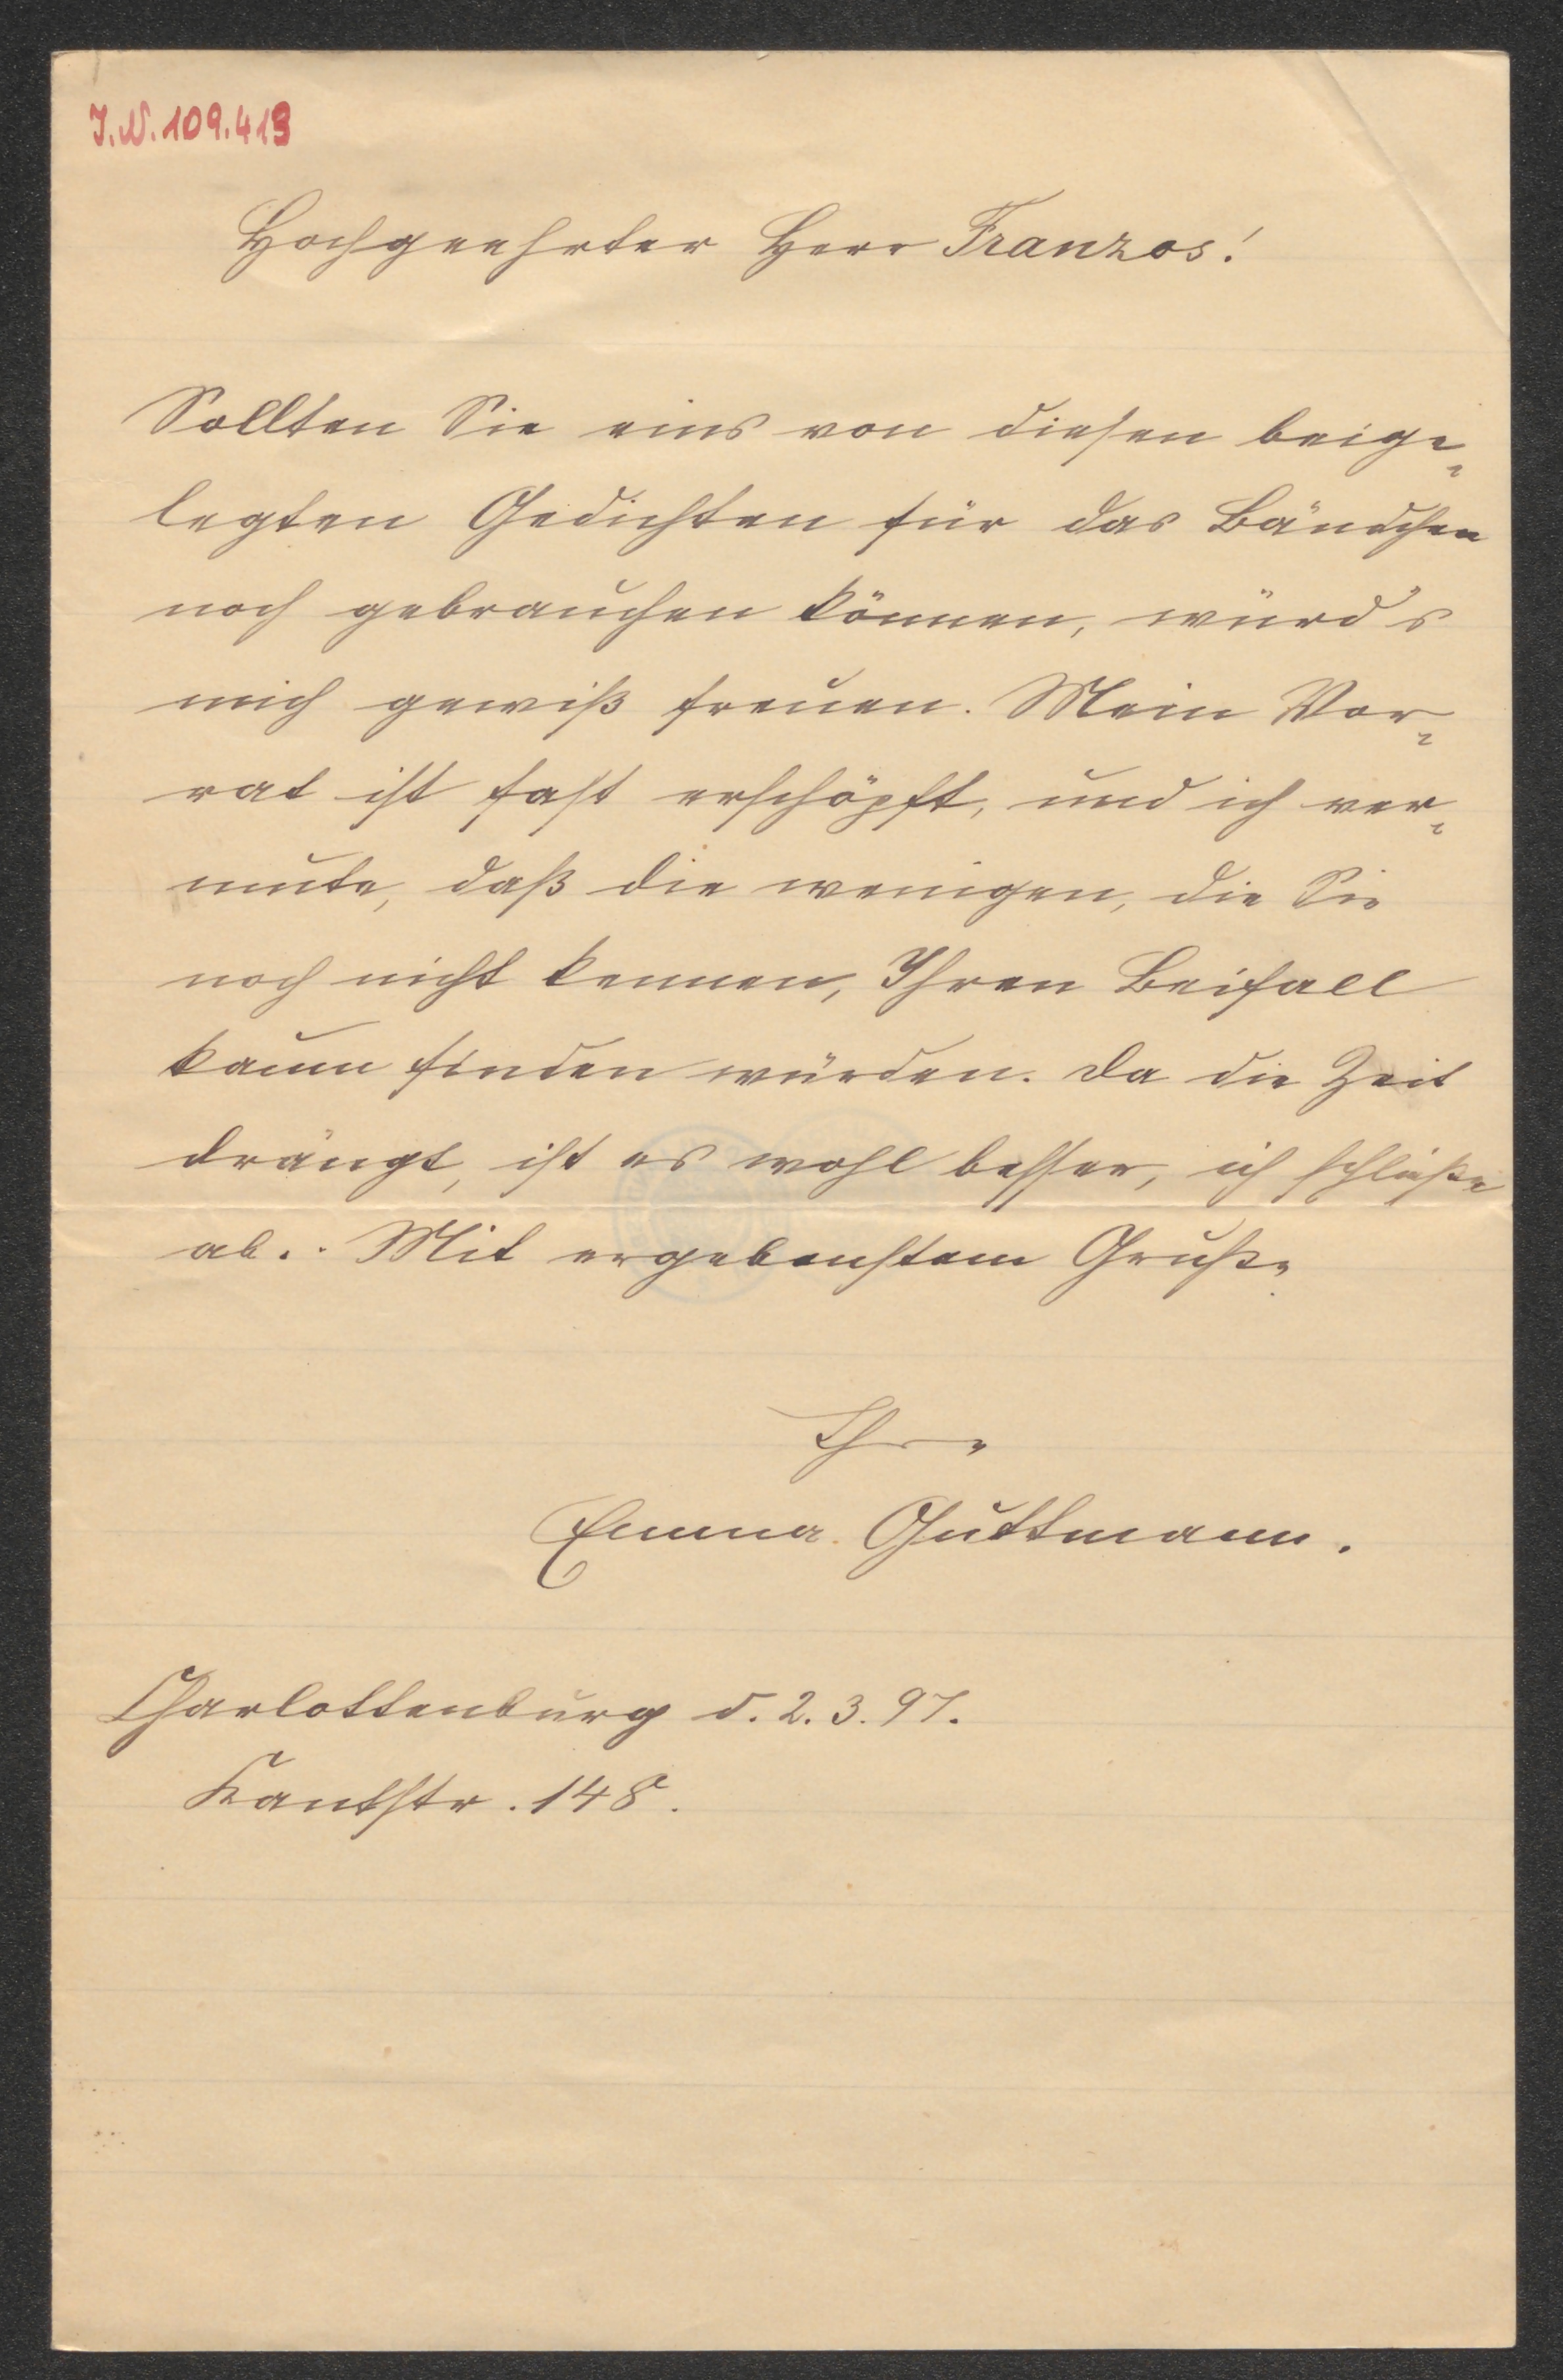 J.N. 109.413
Hochgeehrter Herr Franzos!
Sollten Sie eins von diesen beige-
legten Gedichten für das Bändchen
noch gebrauchen können, würd's
mich gewiß freuen. Mein Vor-
rat ist fast erschöpft, und ich ver-
mute, daß die wenigen, die Sie
noch nicht kennen, Ihren Beifall
kaum finden würden. Da die Zeit
drängt, ist es wohl besser, ich schließe
ab. Mit ergebenstem Gruße
Ihre
Emma Guttmann.
Charlottenburg d. 2. 3. 97.
Kantstr. 148.